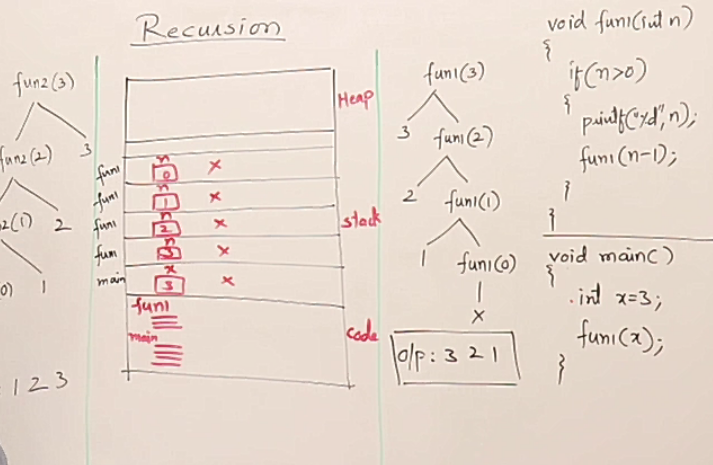 Recursion
fun2(3)
fun2(2) 3
2(1) 2
0) 1
1 2 3
Heap
fun1 n 0 ×
fun1 n 1 ×
fun1 n 2 ×
fun1 n 3 ×
main x 3 ×
stack
fun1
main
code
fun1(3)
3 fun1(2)
2 fun1(1)
1 fun1(0)
×
o/p: 3 2 1
void fun1(int n)
{
if(n>0)
{
printf("%d", n);
fun1(n-1);
}
}
void main()
{
int x=3;
fun1(x);
}